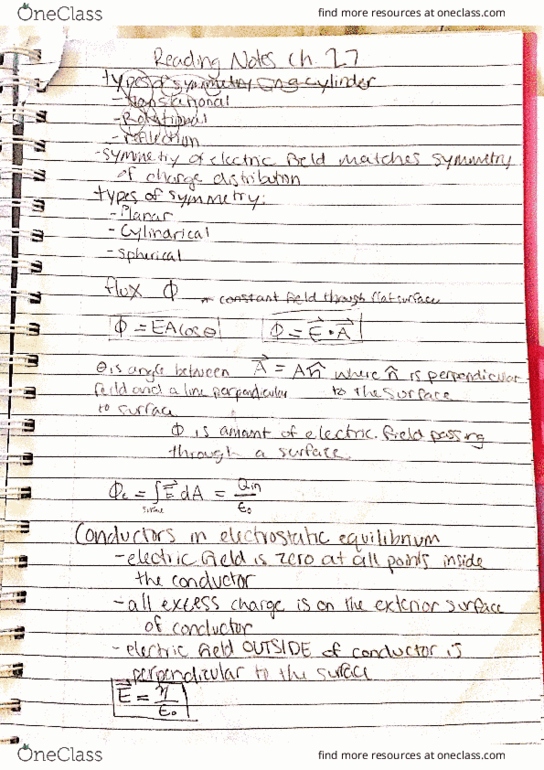 OneClass
find more resources at oneclass.com
Reading Notes Ch. 27
types of symmetry cylinder
- translational
- Rotational
- reflection
- symmetry of electric field matches symmetry
of charge distribution
types of symmetry:
- Planar
- Cylinarical
- spherical
flux Φ constant field through flat surface
Φ = EA cos θ Φ = E⃗ • A⃗
θ is angle between A⃗ = An̂ where n̂ is perpendicular
field and a line perpendicular to the surface
to surface
Φ is amount of electric field passing
through a surface.
Φe = ∫ E⃗ dA = Qin/ε₀
surface
Conductors in electrostatic equilibrium
- electric field is zero at all points inside
the conductor
- all excess charge is on the exterior surface
of conductor
- electric field OUTSIDE of conductor is
perpendicular to the surface
E⃗ = η/ε₀
OneClass
find more resources at oneclass.com